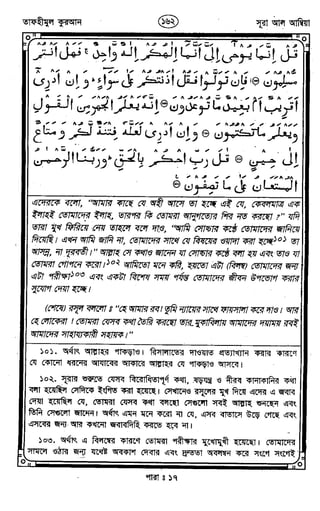 তাফহীমুল কুরআন
১৬২
সূরা আল আম্বিয়া
قُلْ إِنَّمَا يُوحَىٰ إِلَيَّ أَنَّمَا إِلَٰهُكُمْ إِلَٰهٌ وَاحِدٌ ۚ فَهَلْ أَنتُمْ
مُّسْلِمُونَ ۝ فَإِن تَوَلَّوْا فَقُلْ آذَنتُكُمْ عَلَىٰ سَوَاءٍ ۖ وَإِنْ أَدْرِي
أَقَرِيبٌ أَم بَعِيدٌ مَّا تُوعَدُونَ ۝ إِنَّهُ يَعْلَمُ الْجَهْرَ مِنَ الْقَوْلِ
وَيَعْلَمُ مَا تَكْتُمُونَ ۝ وَإِنْ أَدْرِي لَعَلَّهُ فِتْنَةٌ لَّكُمْ وَمَتَاعٌ
إِلَىٰ حِينٍ ۝ قَٰلَ رَبِّ احْكُم بِالْحَقِّ ۗ وَرَبُّنَا الرَّحْمَٰنُ
الْمُسْتَعَانُ عَلَىٰ مَا تَصِفُونَ ۝
এদেরকে বলো, “আমার কাছে যে অহী আসে তা হচ্ছে এই যে, কেবলমাত্র এক
ইলাহই তোমাদের ইলাহ, তারপর কি তোমরা আনুগত্যের শির নত করছো?” যদি
তারা মুখ ফিরিয়ে নেয় তাহলে বলে দাও, “আমি সোচ্চার কণ্ঠে তোমাদের জানিয়ে
দিয়েছি। এখন আমি জানি না, তোমাদের সাথে যে বিষয়ের ওয়াদা করা হচ্ছে১০১ তা
আসন্ন, না দূরবর্তী।” আল্লাহ সে কথাও জানেন যা সোচ্চার কণ্ঠে বলা হয় এবং তাও যা
তোমরা গোপনে করো।১০২ আমিতো মনে করি, হয়তো এটা (বিলম্ব) তোমাদের জন্য
এটা পরীক্ষা১০৩ এবং একটা বিশেষ সময় পর্যন্ত তোমাদের জীবন উপভোগ করার
সুযোগ দেয়া হচ্ছে।
(শেষে) রসূল বললো ঃ “হে আমার রব! তুমি ন্যায়ের সাথে ফায়সালা করে দাও। আর
হে লোকেরা! তোমরা যেসব কথা তৈরি করছো তার মুকাবিলায় আমাদের দয়াময় রবই
আমাদের সাহায্যকারী সহায়ক।”
১০১. অর্থাৎ আল্লাহর পাকড়াও। রিসালাতের দাওয়াত প্রত্যাখ্যান করার কারণে
যে কোনো ধরনের আযাবের আকারে আল্লাহর যে পাকড়াও আসবে।
১০২. সূরার শুরুতে যেসব বিরোধিতাপূর্ণ কথা, ষড়যন্ত্র ও নীরব কানাকানির কথা
বলা হয়েছিল সেদিকে ইংগিত করা হয়েছে। সেখানেও রসূলের মুখ দিয়ে এদের এ জবাব
দেয়া হয়েছিল যে, তোমরা যেসব কথা বলছো সেগুলো সবই আল্লাহ শুনছেন এবং
তিনি সেগুলো জানেন। অর্থাৎ এমন মনে করো না যে, এসব বাতাসে উড়ে গেছে এবং
এসবের জন্য আর কখনো জবাবদিহি করতে হবে না।
১০৩. অর্থাৎ এ বিলম্বের কারণে তোমরা পরীক্ষার মুখোমুখী হয়েছো। তোমাদের
সামলে ওঠার জন্য যথেষ্ট অবকাশ দেবার এবং দ্রুততা অবলম্বন করে সংগে সংগেই
পারা ঃ ১৭